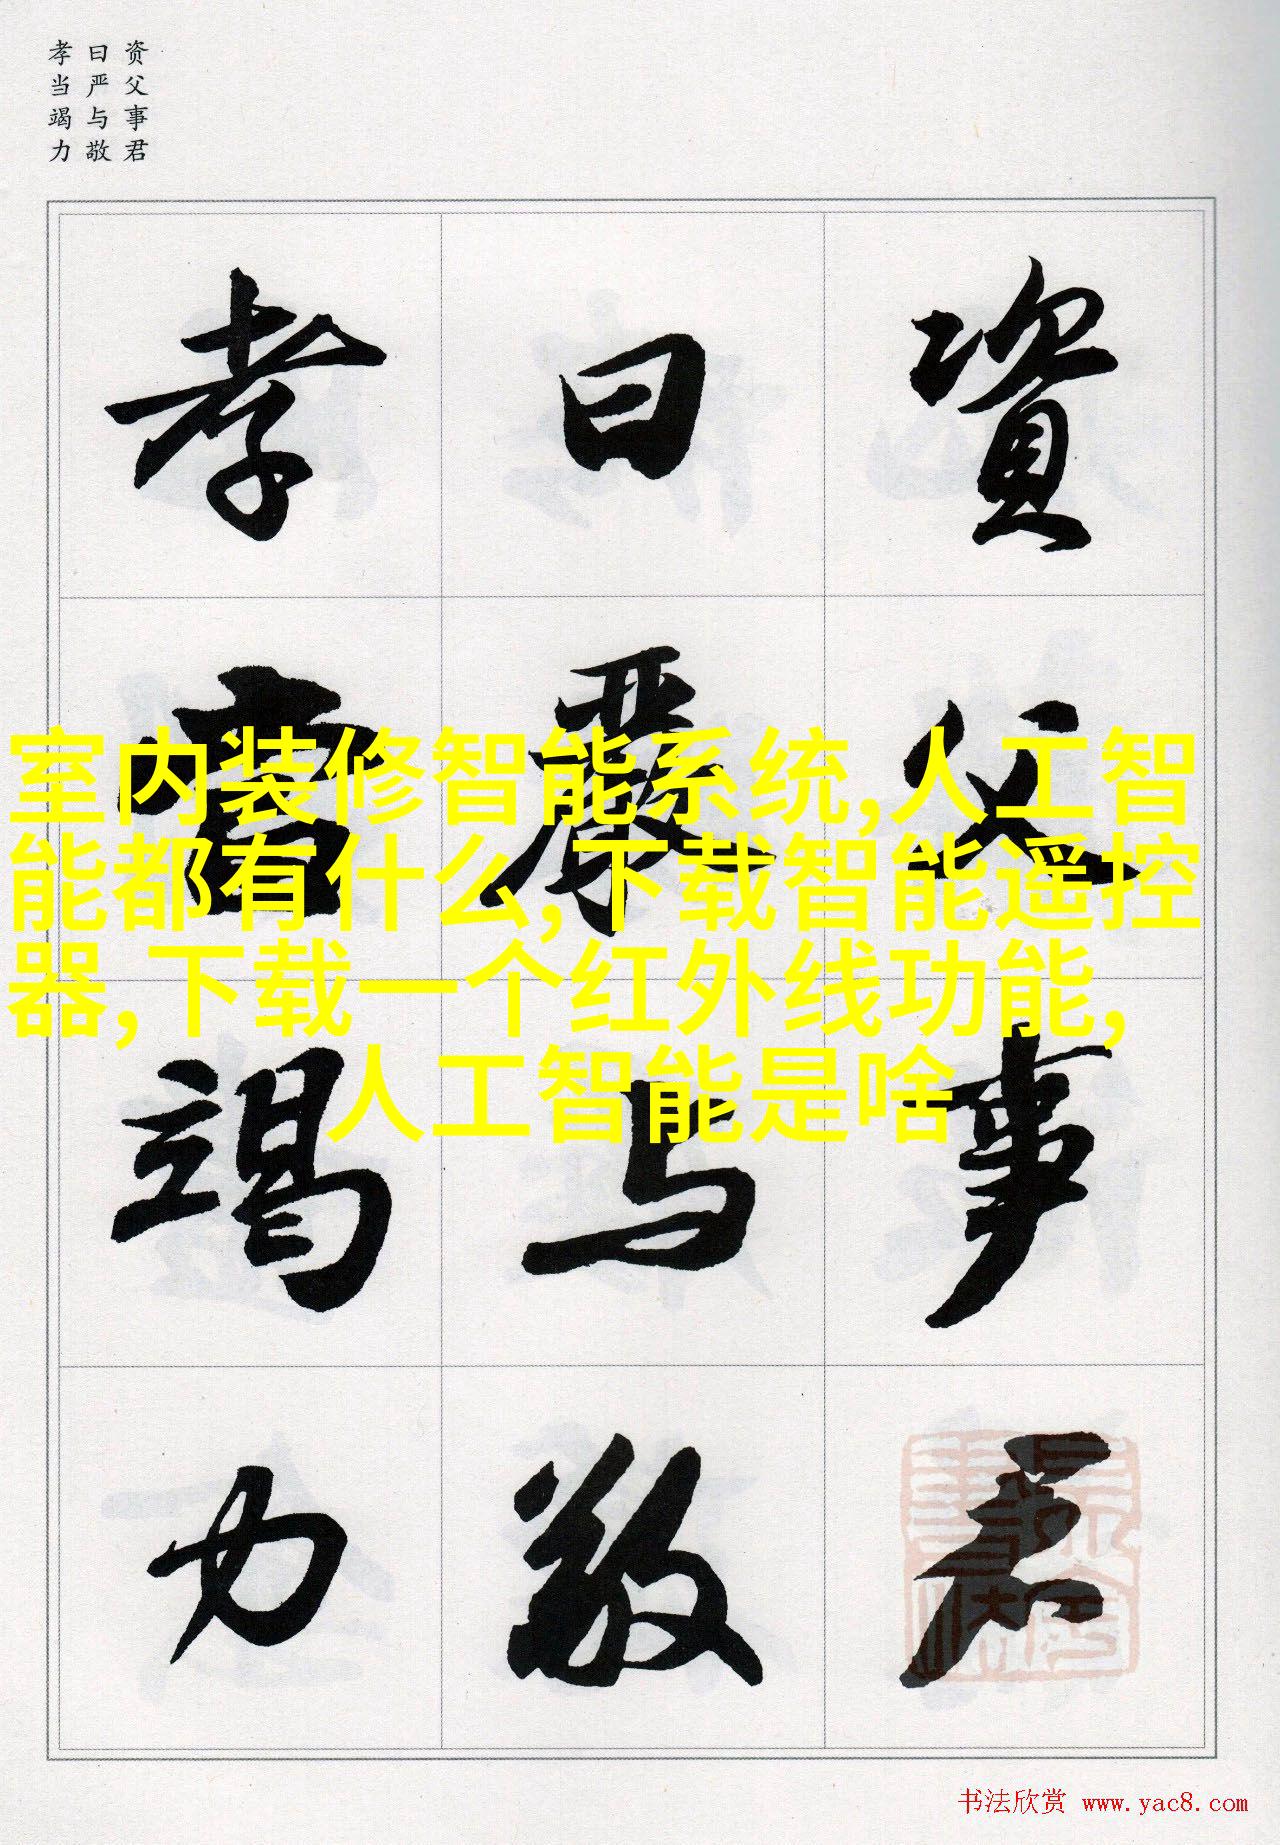 资父事君
曰严与敬
孝当竭力
資父事君
曰嚴与敬
孝當竭力
室内装修智能系统,人工智
能都有什么,下载智能遥控
器,下载一个红外线功能,
人工智能是啥
书法欣赏 www.yac8.com